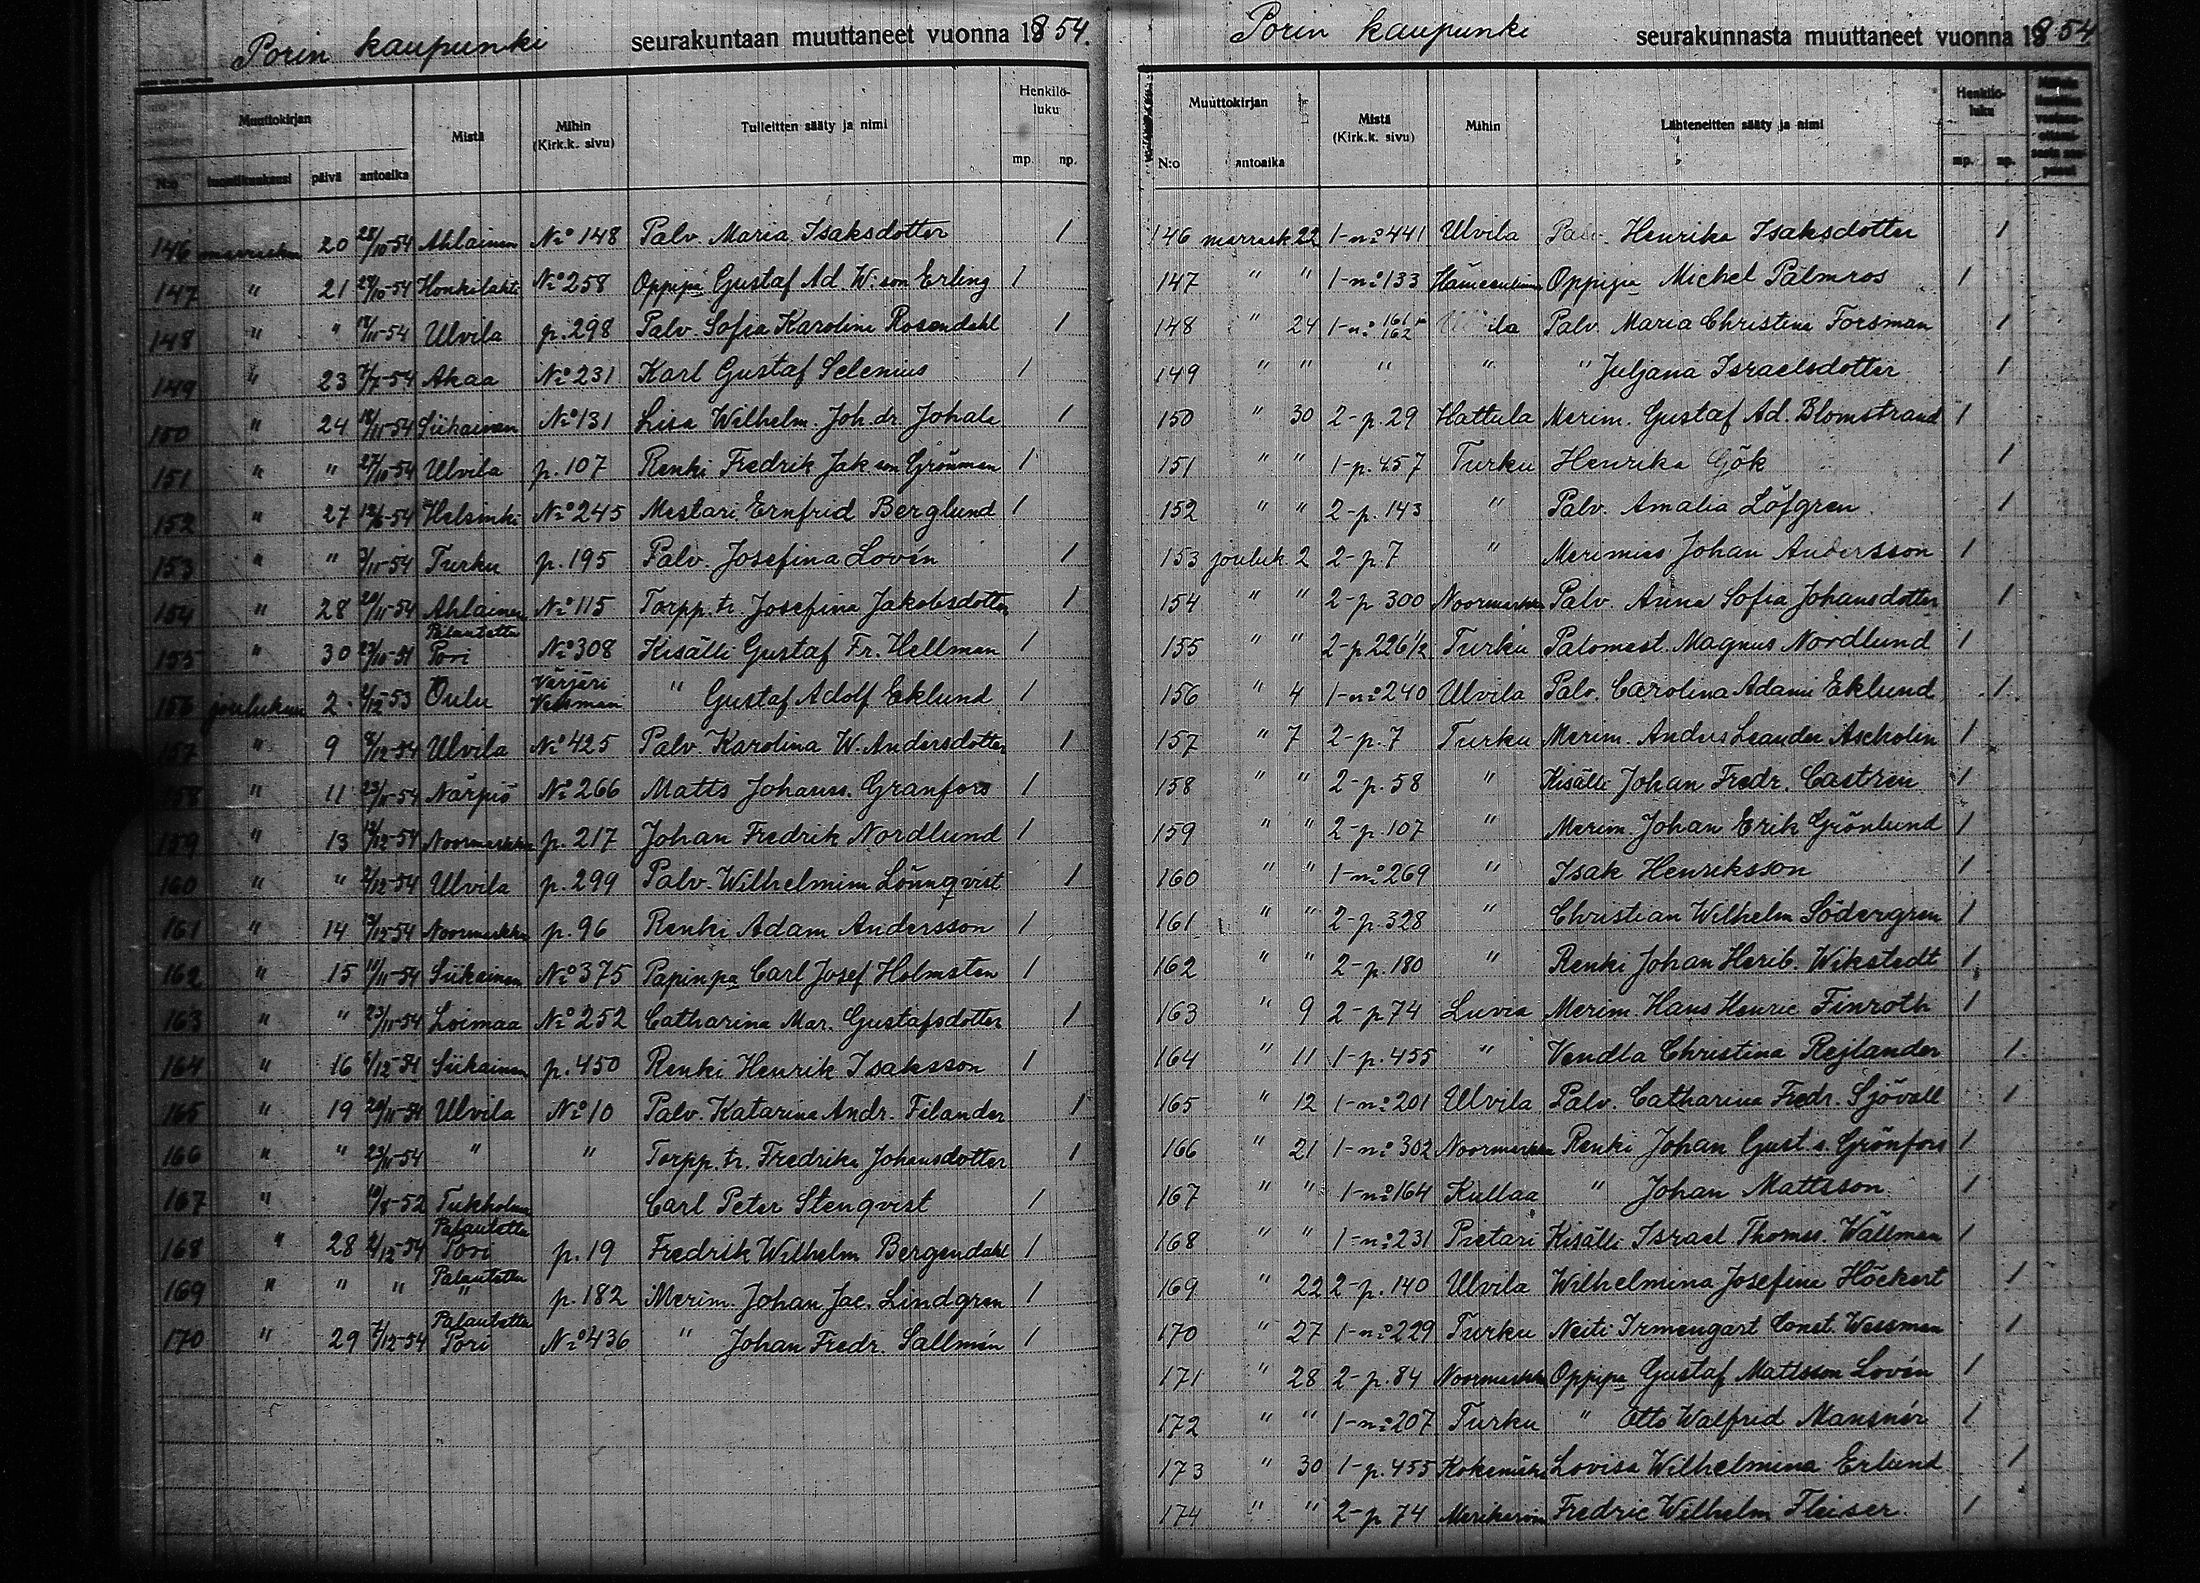 Porin kaupunki seurakuntaan muuttaneet vuonna 1854.
Muuttokirjan Mistä Mihin (Kirk.k. sivu) Tulleitten sääty ja nimi Henkilö-luku
N:o päivä antoaika mp. np.
146 marraskuu 20 28/10-54 Ahlainen No 148 Palv. Maria Isaksdotter 1
147 " 21 28/10-54 Honkilahti No 258 Oppipa Gustaf Ad. W:son Erling 1
148 " " 18/11-54 Ulvila p. 298 Palv. Sofia Karolina Rosendahl 1
149 " 23 7/7-54 Akaa No 231 Karl Gustaf Selenius 1
150 " 24 18/11-54 Siikainen No 131 Lisa Wilhelm. Joh.dr. Johala 1
151 " " 27/10-54 Ulvila p. 107 Renki Fredrik Jak.son Grönman 1
152 " 27 12/6-54 Helsinki No 245 Mestari Ernfrid Berglund 1
153 " " 3/11-54 Turku p. 195 Palv. Josefina Lovén 1
154 " 28 20/11-54 Ahlainen No 115 Torpp. tr. Josefina Jakobsdotter 1
155 " 30 23/10-54 Palautettu Pori No 308 Kisälli Gustaf Fr. Hellman 1
156 joulukuu 2 2/12-53 Oulu Värjäri " Gustaf Adolf Eklund 1
157 " 9 8/12-54 Ulvila No 425 Palv. Karolina W. Andersdotter 1
158 " 11 23/11-54 Närpiö No 266 Matts Johanss. Granfors 1
159 " 13 12/12-54 Noormarkku p. 217 Johan Fredrik Nordlund 1
160 " " 2/12-54 Ulvila p. 299 Palv. Wilhelmina Lönnqvist 1
161 " 14 13/12-54 Noormarkku p. 96 Renki Adam Andersson 1
162 " 15 11/11-54 Siikainen No 375 Papinpa Carl Josef Holmsten 1
163 " " 23/11-54 Loimaa No 252 Catharina Mar. Gustafsdotter 1
164 " 16 6/12-54 Siikainen p. 450 Renki Henrik Isaksson 1
165 " 19 20/11-54 Ulvila No 10 Palv. Katarina Andr. Filander 1
166 " " 23/11-54 " " Torpp. tr. Fredrika Johansdotter 1
167 " 10/8-52 Tukholma Carl Peter Stenqvist 1
168 " 28 2/12-54 Palautettu Pori p. 19 Fredrik Wilhelm Bergendahl 1
169 " " " Palautettu " p. 182 Merim. Johan Jac. Lindgren 1
170 " 29 7/12-54 Palautettu Pori No 436 " Johan Fredr. Sallmén 1
Porin kaupunki seurakunnasta muuttaneet vuonna 1854
Muuttokirjan Mistä (Kirk.k. sivu) Mihin Lähteneitten sääty ja nimi Henkilö-luku
N:o antoaika mp. np.
146 marrask 22 1-no 441 Ulvila Palv. Henrika Isaksdotter 1
147 " " 1-no 133 Hämeenlinna Oppipa Michel Palmros 1
148 " 24 1-no 161 162 Ulvila Palv. Maria Christina Forsman 1
149 " " " " " Juljana Israelsdotter 1
150 " 30 2-p. 29 Hattula Merim. Gustaf Ad. Blomstrand 1
151 " " 1-p. 457 Turku Henrika Gök 1
152 " " 2-p. 143 " Palv. Amalia Löfgren 1
153 jouluk. 2 2-p. 7 " Merimies Johan Andersson 1
154 " " 2-p 300 Noormarkku Palv. Anna Sofia Johansdotter 1
155 " " 2-p 226 1/2 Turku Palomest. Magnus Nordlund 1
156 " 4 1-no 240 Ulvila Palv. Carolina Adami Eklund 1
157 " 7 2-p. 7 Turku Merim. Anders Leander Ascholin 1
158 " " 2-p. 58 " Kisälli Johan Fredr. Castren 1
159 " " 2-p. 107 " Merim. Johan Erik Grönlund 1
160 " " 1-no 269 " Isak Henriksson 1
161 " " 2-p. 328 " Christian Wilhelm Södergren 1
162 " " 2-p. 180 " Renki Johan Herib. Wikstedt 1
163 " 9 2-p 74 Luvia Merim. Hans Henric Finroth 1
164 " 11 1-p. 455 " Vendla Christina Rejlander 1
165 " 12 1-no 201 Ulvila Palv. Catharina Fredr. Sjövall 1
166 " 21 1-no 302 Noormarkku Renki Johan Gust.s. Grönfors 1
167 " " 1-no 164 Kullaa " Johan Mattsson 1
168 " " 1-no 231 Pietari Kisälli Israel Thomss. Wällman 1
169 " 22 2-p. 140 Ulvila Wilhelmina Josefina Höckert 1
170 " 27 1-no 229 Turku Neiti Irmengart Const. Wessman 1
171 " 28 2-p. 84 Noormarkku Oppipa Gustaf Mattsson Lovén 1
172 " " 1-no 207 Turku " Otto Walfrid Mansnér 1
173 " 30 1-p. 455 Kokemäki Lovisa Wilhelmina Erlund 1
174 " " 2-p 74 Merikarvia Fredric Wilhelm Fleiser 1